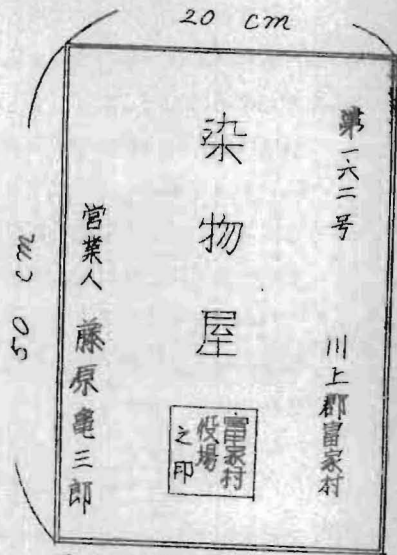 20 cm
50 cm
第一六二号　川上郡富家村
染物屋
富家村
役場
之印
営業人　藤原亀三郎